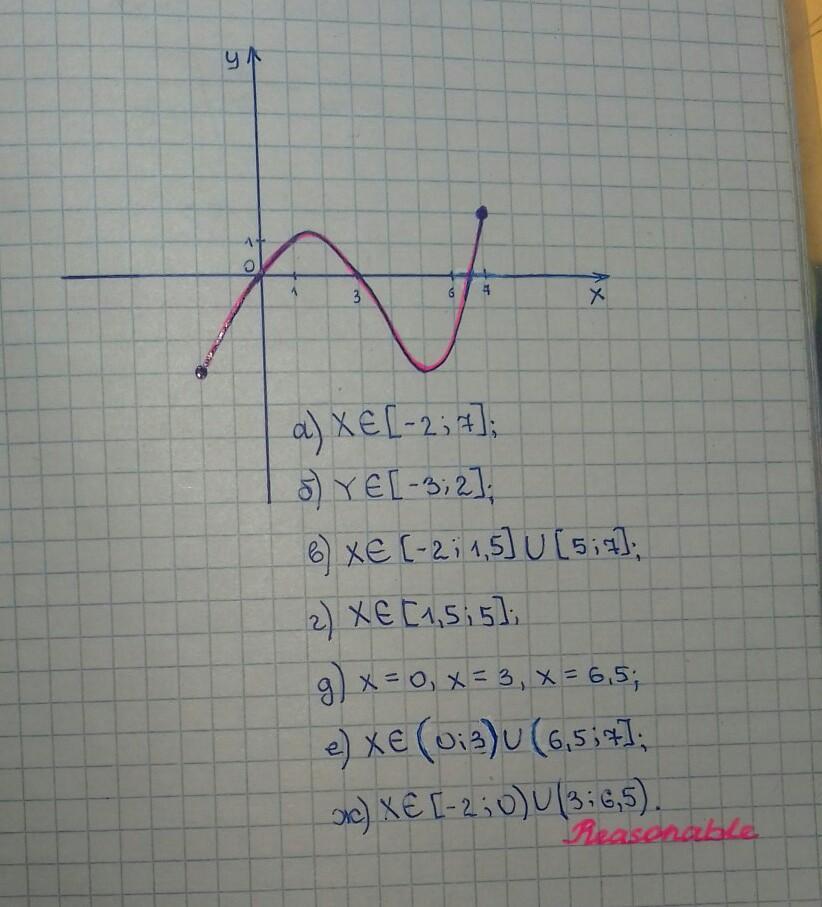 y
1
0
1
3
6
7
x
а) X∈[-2;7];
б) Y∈[-3;2];
в) X∈[-2;1,5]∪[5;7];
г) X∈[1,5;5];
д) x=0, x=3, x=6,5;
е) X∈(0;3)∪(6,5;7];
ж) X∈[-2;0)∪(3;6,5).
Reasonable